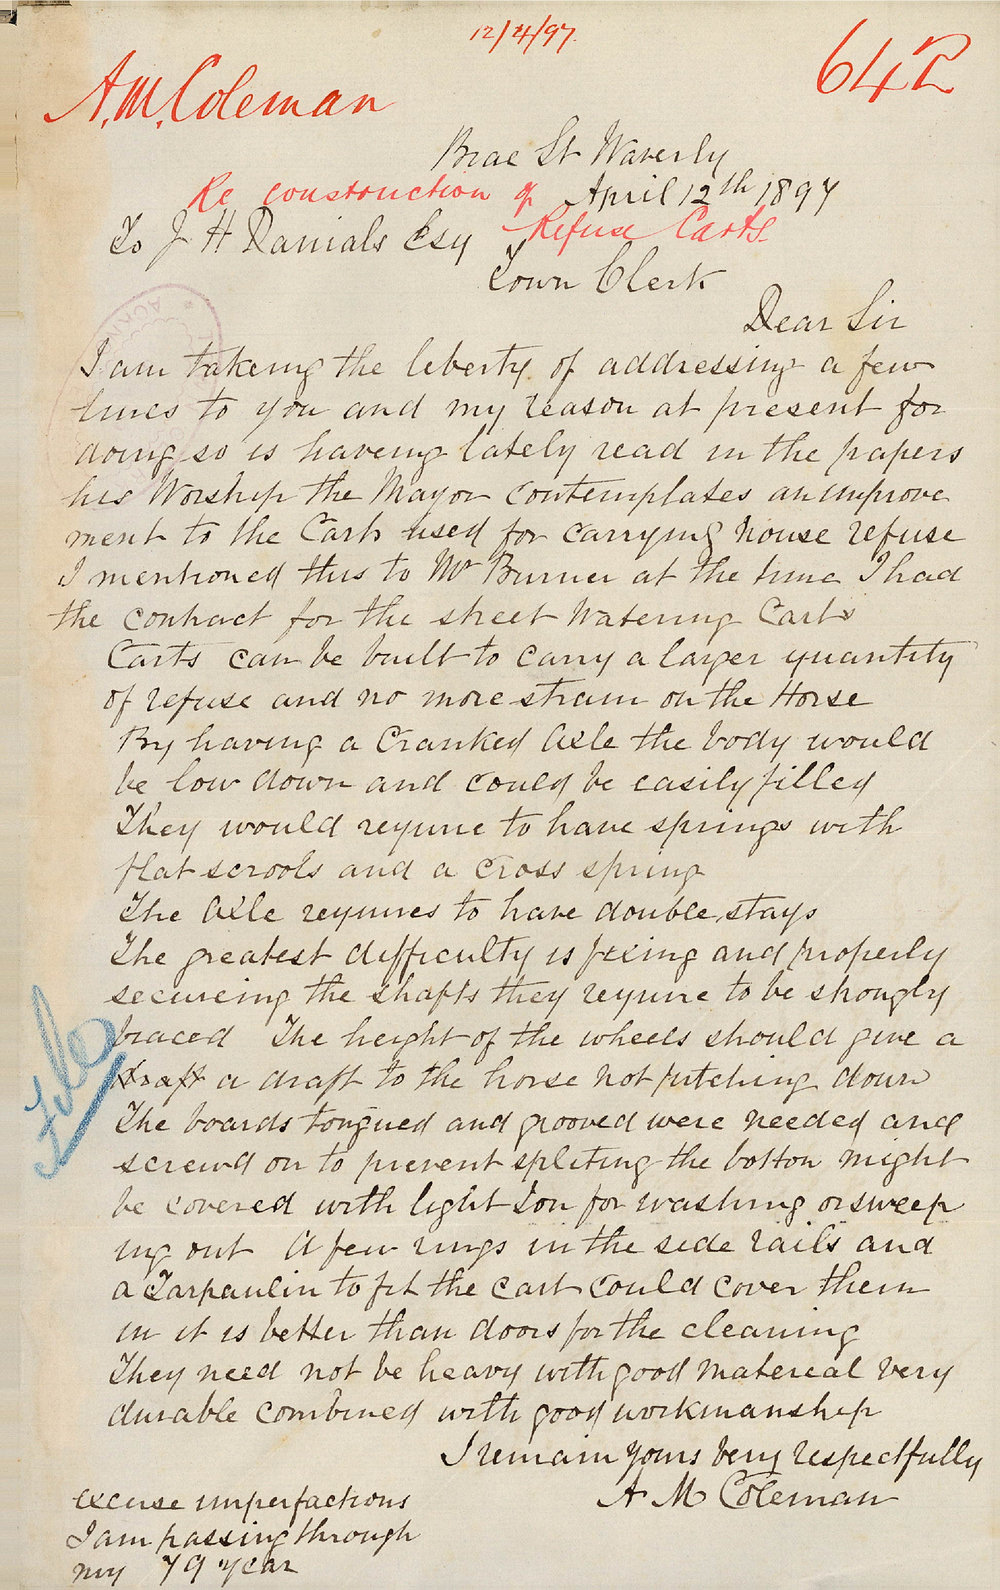 12/4/97.
642
A.M. Coleman
Brae St Waverly
Re construction of April 12th 1897
Refuse Carts.
To J H Danials Esq
Town Clerk
Dear Sir
I am takeing the liberty of addressing a few
lines to you and my reason at present for
doing so is haveing lately read in the papers
his Worship the Mayor contemplates an improve
ment to the Carts used for carrying house refuse
I mentioned this to Mr at the time I had
the contract for the street Watering Carts
Carts can be built to carry a larger quantity
of refuse and no more strain on the Horse
By having a Cranked Axle the body would
be low down and could be easily filled
They would require to have springs with
flat scrools and a cross spring
The Axle requires to have double stays
The greatest difficulty is fixing and properly
secureing the shafts they require to be strongly
braced The height of the wheels should give a
draft a draft to the horse not pitching down
The boards tongued and grooved were needed and
screwd on to prevent spliting the bottom might
be covered with light Iron for washing or sweep
ing out A few rings in the side rails and
a Tarpaulin to fit the cart could cover them
in it is better than doors for the cleaning
They need not be heavy with good matereal very
durable combined with good workmanship
I remain yours very respectfully
A M Coleman
excuse imperfactions
I am passing through
my 79 year
File